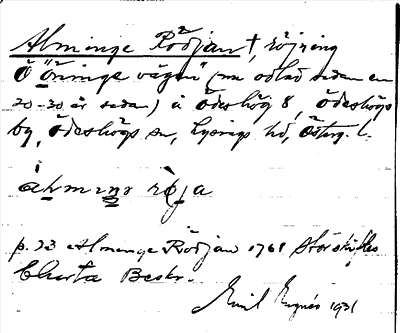 Alminge Rödjan †, röjning
Ö "Öninge vägen" (nu odlad sedan en
20-30 år sedan) å Ödeshög 8, Ödeshögs
by, Ödeshögs sn, Lysings hd, Östergl. l.
åhmıŋ röja
p. 23 Alminge Rödjan 1761 Storskiftes
Charta Beskr.
Emil 1931